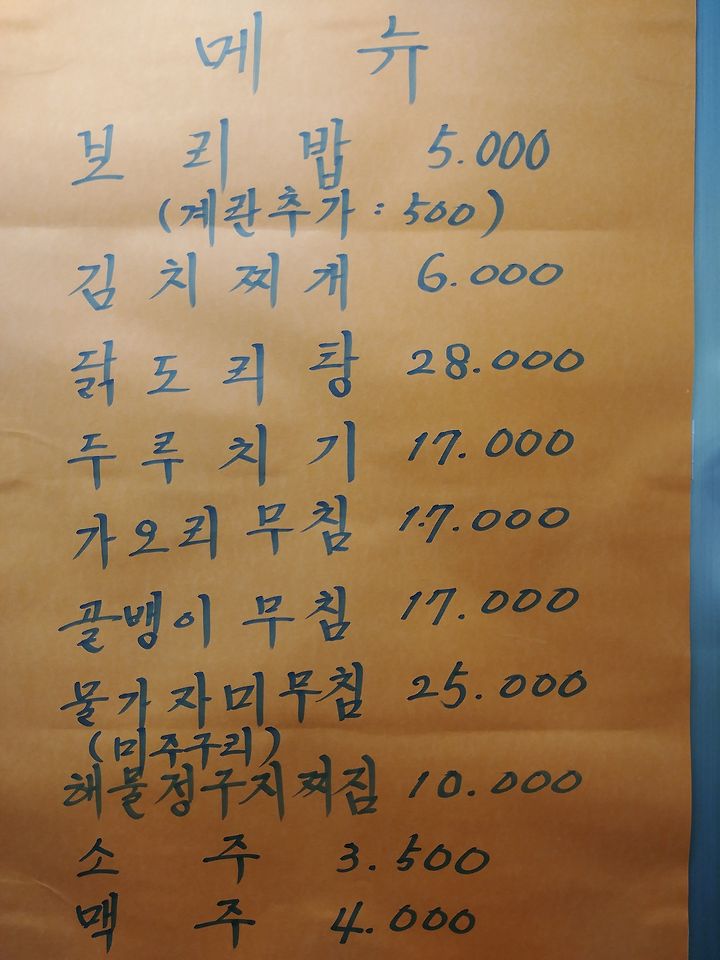 메뉴
보리밥 5.000
(계란추가 : 500)
김치찌개 6.000
닭도리탕 28.000
두루치기 17.000
가오리무침 17.000
골뱅이무침 17.000
물가자미무침 25.000
(미주구리)
해물정구지찌짐 10.000
소주 3.500
맥주 4.000